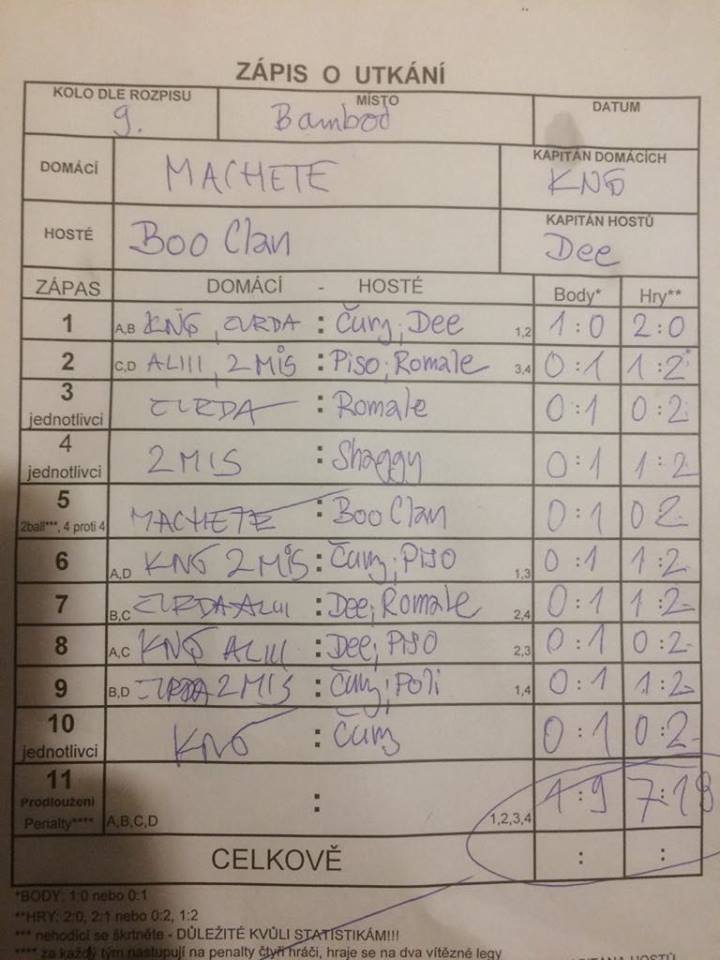 ZÁPIS O UTKÁNÍ
KOLO DLE ROZPISU MÍSTO DATUM
9. Bambod
DOMÁCÍ MACHETE KAPITÁN DOMÁCÍCH
KNŐ
HOSTÉ Boo Clan KAPITÁN HOSTŮ
Dee
ZÁPAS DOMÁCÍ - HOSTÉ Body* Hry**
1 A,B KNŐ, CURDA : Čumj; Dee 1,2 1:0 2:0
2 C,D ALIII, 2MIS : Piso; Romale 3,4 0:1 1:2
3 jednotlivci CURDA : Romale 0:1 0:2
4 jednotlivci 2MIS : Shaggy 0:1 1:2
5 2ball***, 4 proti 4 MACHETE : Boo Clan 0:1 0 2
6 A,D KNŐ 2MIS : PISO 1,3 0:1 1:2
7 B,C CURDA ALIII : Dee; Romale 2,4 0:1 1:2
8 A,C KNŐ ALIII : Dee; PISO 2,3 0:1 0:2
9 B,D CURDA 2MIS : Poli 1,4 0:1 1:2
10 jednotlivci KNŐ : 0:1 0:2
11 Prodloužení Penalty**** A,B,C,D : 1,2,3,4 1:9 7:18
CELKOVĚ : :
*BODY: 1:0 nebo 0:1
**HRY: 2:0, 2:1 nebo 0:2, 1:2
*** nehodící se škrtněte - DŮLEŽITÉ KVŮLI STATISTIKÁM!!!
**** za každý tým nastupují na penalty čtyři hráči, hraje se na dva vítězné legy
KAPITÁNA HOSTŮ